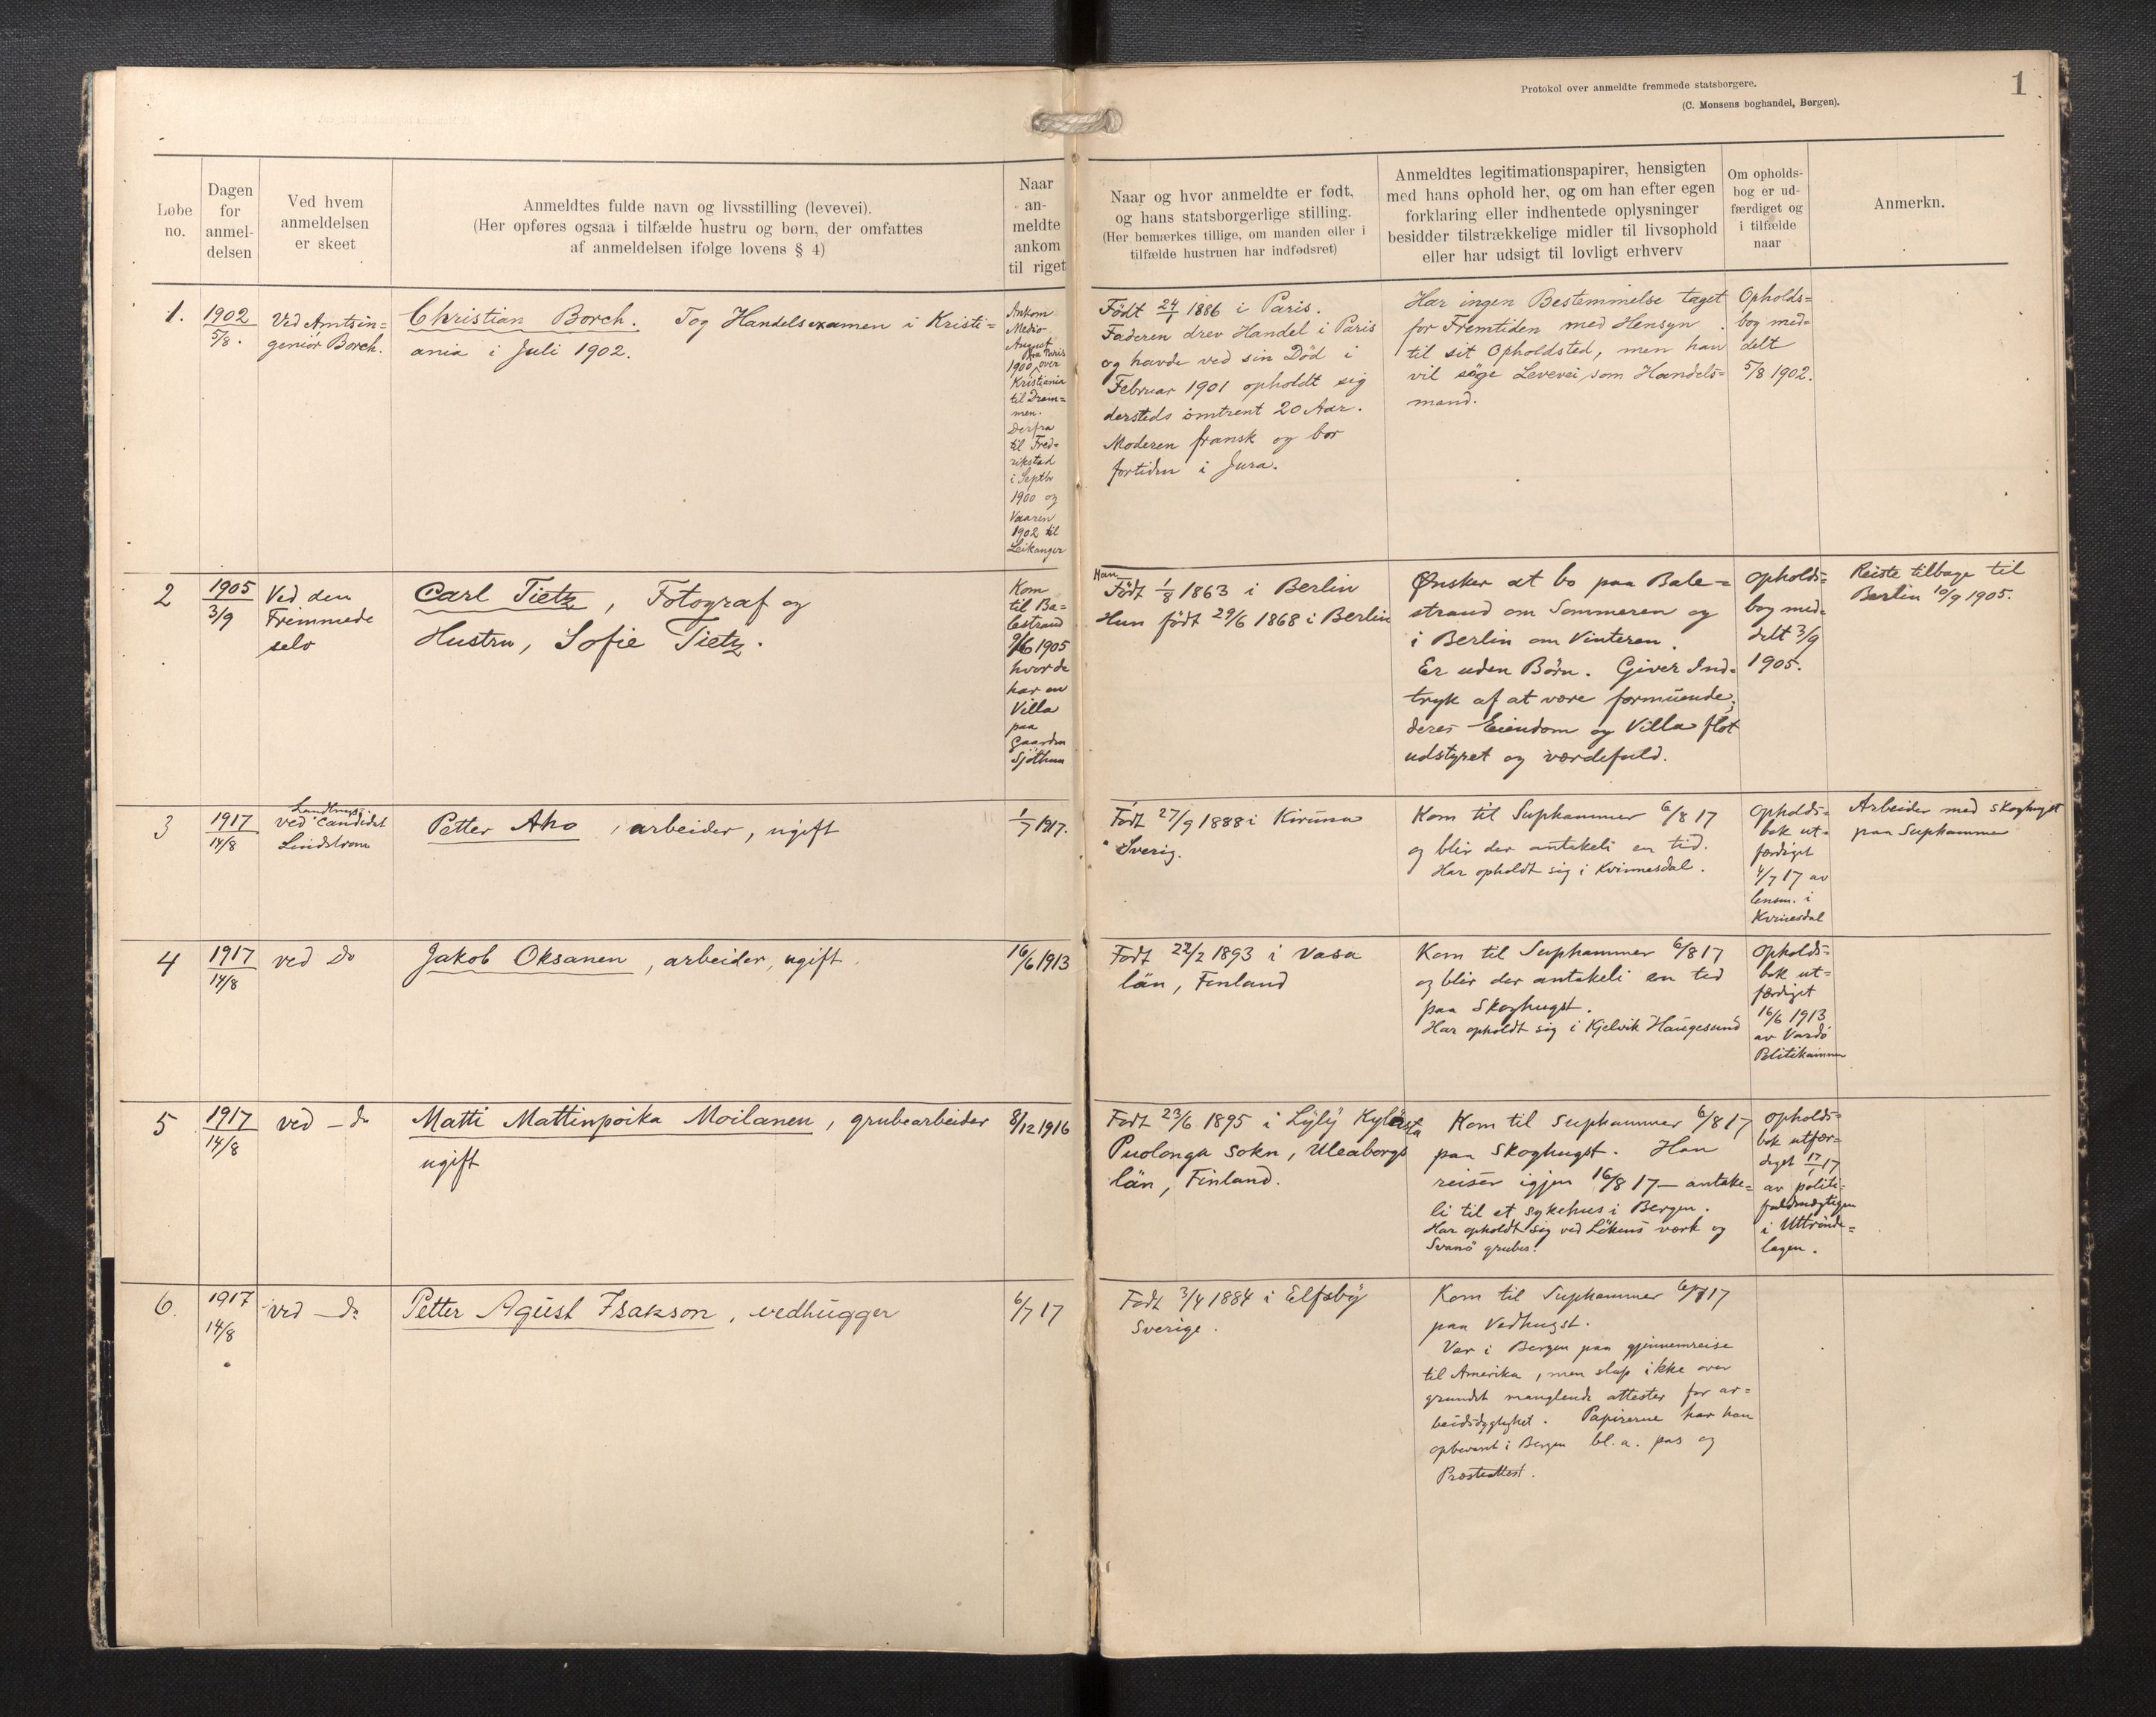 Protokol over anmeldte fremmede statsborgere.
(C. Monsens boghandel, Bergen).
1
Løbe
no.
Dagen
for
anmel-
delsen
Ved hvem
anmeldelsen
er skeet
Anmeldtes fulde navn og livsstilling (levevei).
(Her opføres ogsaa i tilfælde hustru og børn, der omfattes
af anmeldelsen ifølge lovens § 4)
Naar
an-
meldte
ankom
til riget
Naar og hvor anmeldte er født,
og hans statsborgerlige stilling.
(Her bemærkes tillige, om manden eller i
tilfælde hustruen har indfødsret)
Anmeldtes legitimationspapirer, hensigten
med hans ophold her, og om han efter egen
forklaring eller indhentede oplysninger
besidder tilstrækkelige midler til livsophold
eller har udsigt til lovligt erhverv
Om opholds-
bog er ud-
færdiget og
i tilfælde
naar
Anmerkn.
1.
1902
5/8.
Ved Amtsin=
geniør Borch.
Christian Borch. Tog Handelsexamen i Kristi=
ania i Juli 1902.
Ankom
Medio
August
fra Paris
1900 over
Kristiania
til Dram=
men.
Derfra
til Fred=
rikstad
i Septbr
1900 og
Vaaren
1902 til
Leikanger
Født 24/1 1886 i Paris.
Faderen drev Handel i Paris
og havde ved sin Død i
Februar 1901 opholdt sig
dersteds omtrent 20 Aar.
Moderen fransk og bor
fortiden i Jura.
Har ingen Bestemmelse taget
for Fremtiden med Hensyn
til sit Opholdsted, men han
vil søge Levevei som Handels=
mand.
Opholds=
bog med=
delt
5/8 1902.
2
1905
3/9
Ved den
Fremmede
selv
Carl Tietz, Fotograf og
Hustru, Sofie Tietz.
Kom
til Ba=
lestrand
9/6 1905
hvor de
har en
Villa
paa
Gaarden
Sjøthun
Han
Født 1/8 1863 i Berlin
Hun født 29/6 1868 i Berlin
Ønsker at bo paa Bale=
strand om Sommeren og
i Berlin om Vinteren.
Er uden Børn. Giver Ind=
tryk af at være formuende;
deres Eiendom og Villa flot
udstyret og værdefuld.
Opholds=
bog med=
delt 3/9
1905.
Reiste tilbage til
Berlin 10/9 1905.
3
1917
14/8
Landbrugs=
ved Candidat
Lindstrøm
Petter Aho, arbeider, ugift
1/7 1917.
Født 27/9 1888 i Kiruna
Sverig.
Kom til Suphammer 6/8 17
og blir der antakeli en tid.
Har opholdt sig i Kvinnesdal.
Opholds=
bok ut=
færdiget
4/7 17 av
lensm. i
Kvinesdal
Arbeider med skoghugst
paa Suphammer
4
1917
14/8
ved do
Jakob Oksanen, arbeider, ugift.
16/6 1913
Født 22/2 1893 i Vasa
län, Finland
Kom til Suphammer 6/8 17
og blir der antakeli en tid
paa Skoghugst.
Har opholdt sig i Kjelvik Haugesund
Opholds=
bok ut=
færdiget
16/6 1913
av Vardö
Politikammer
5
1917
14/8
ved – do
Matti Mattinpoika Moilanen, grubearbeider
ugift
8/12 1916
Født 23/6 1895 i Lÿlÿ Kylästa
Puolonga Sokn, Uleaborgs
län, Finland.
Kom til Suphammer 6/8 17
paa Skoghugst. Han
reiser igjen 16/8 17 – antake=
li til et sykehus i Bergen.
Har opholdt sig ved Løkens værk og
Svanö gruber.
Opholds=
bok utfær=
diget 17/1 17
av politi=
fuldmægtigen
i Uttrönde=
lagen.
6.
1917
14/8
ved – do
Petter Agust Isakson, vedhugger
6/7 17
Født 3/4 1884 i Elfsbÿ
Sverige.
Kom til Suphammer 17
paa Vedhugst.
Var i Bergen paa gjennemreise
til Amerika, men slap ikke over
grundet manglende attester for ar=
beidsdygtighet. Papirerne har han
opbevaret i Bergen bl. a. pas og
Prestattest.